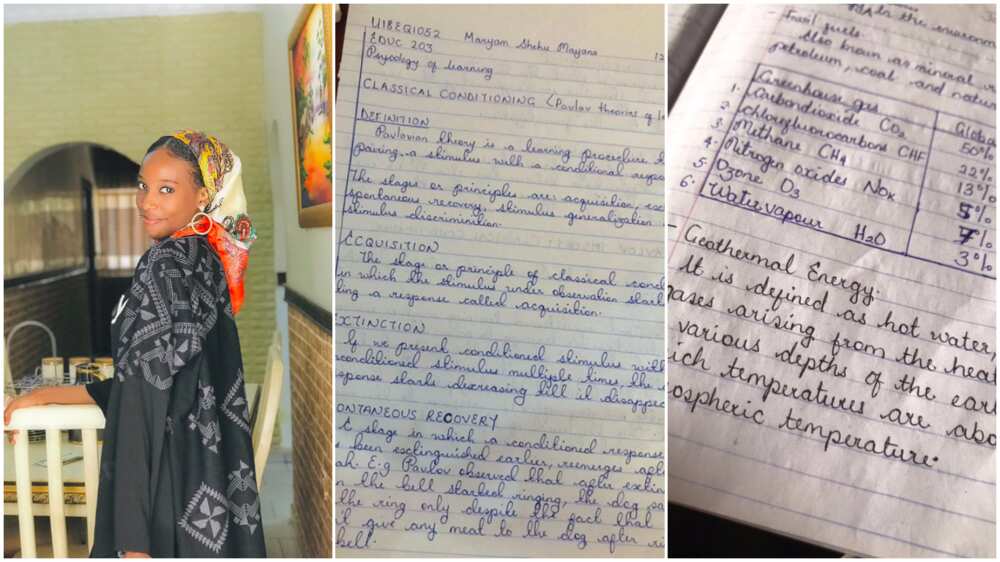 U18EQ1052 Maryam Shehu Mayana 12
EDUC 203
Psycology of learning
CLASSICAL CONDITIONING (Pavlov theories of le
DEFINITION
Pavlovian theory is a learning procedure
pairing a stimulus with a conditional respo
The stages or principles are: acquisition, ex
spontanous recovery, stimulus generalization
stimulus discriminition.
ACQUISITION
The stage or principle of classical cond
in which the stimulus under observation star
ling a response called acquisition.
EXTINCTION
If we present conditioned stimulus with
conditioned stimulus multiple times, the
sponse starts decreasing till it disappea
ONTANEOUS RECOVERY
A stage in which a conditioned response
been extinguished earlier, reemerge afte
E.g Pavlov observed that after extin
n the bell started ringing, the dog
the ring only despite the fact that
give any meat to the dog after ri
bell.
In the environm
Fossil fuels
Also known as mineral
petroleum, coal and natur
Greenhouse gas Globa
1. Carbondioxide CO2 50%
2. Chloroflurocarbons CHF 22%
3. Methane CH4 13%
4. Nitrogen oxides NOx 5%
5. Ozone O3 7%
6. Water vapour H2O 3%
- Geothermal Energy:
It is defined as hot water,
gases arising from the heat
various depths of the eart
ich temperatures are abo
ospheric temperature.